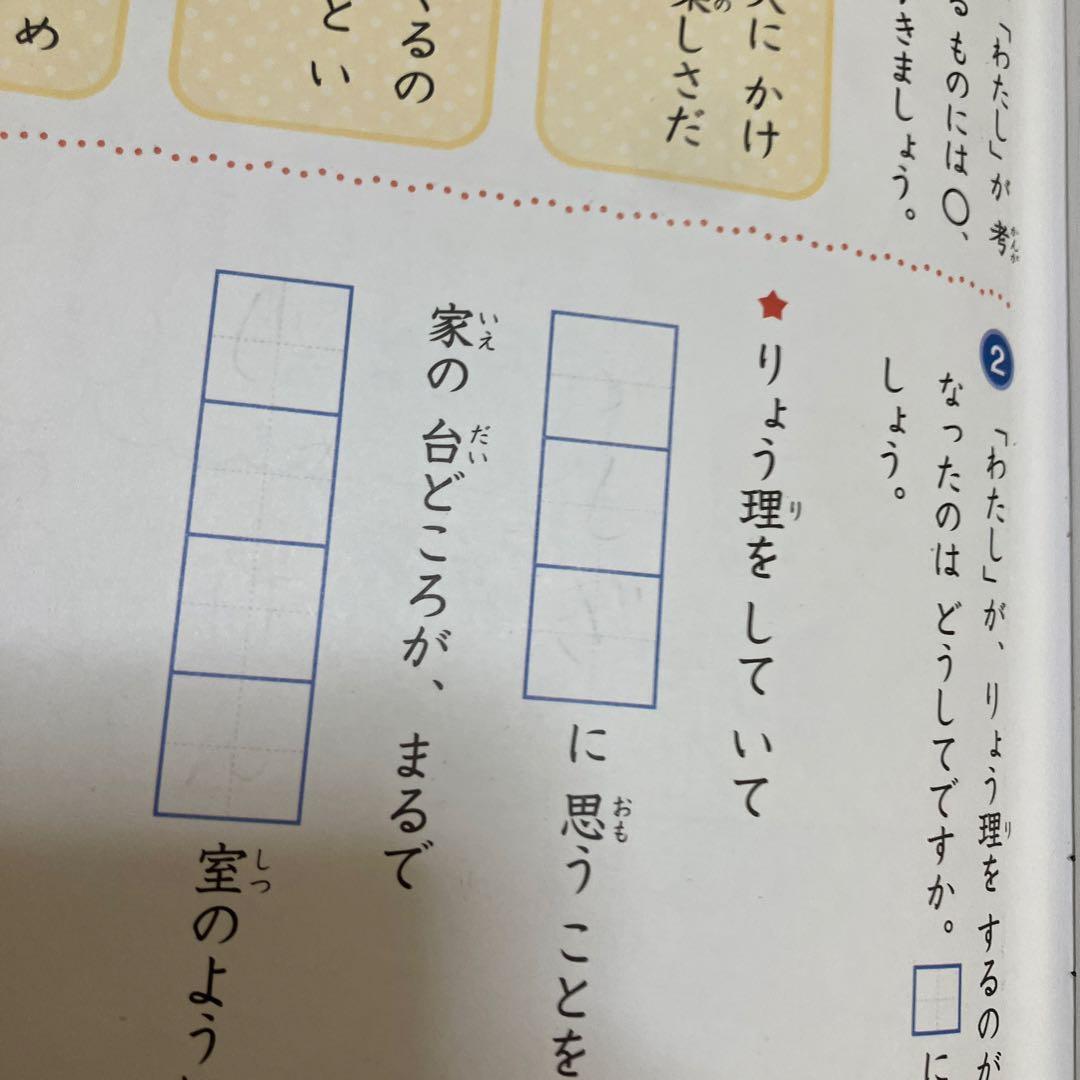 「わたし」が 考
かんが
るものには○、
きましょう。
にかけ
しさだ
るの
とい
め
2
「わたし」が、りょう理を するのが
り
なったのは どうしてですか。
に
しょう。
★ りょう理を して いて
り
に 思う ことを
おも
家の 台どころが、まるで
いえ
だい
室のよう
しつ